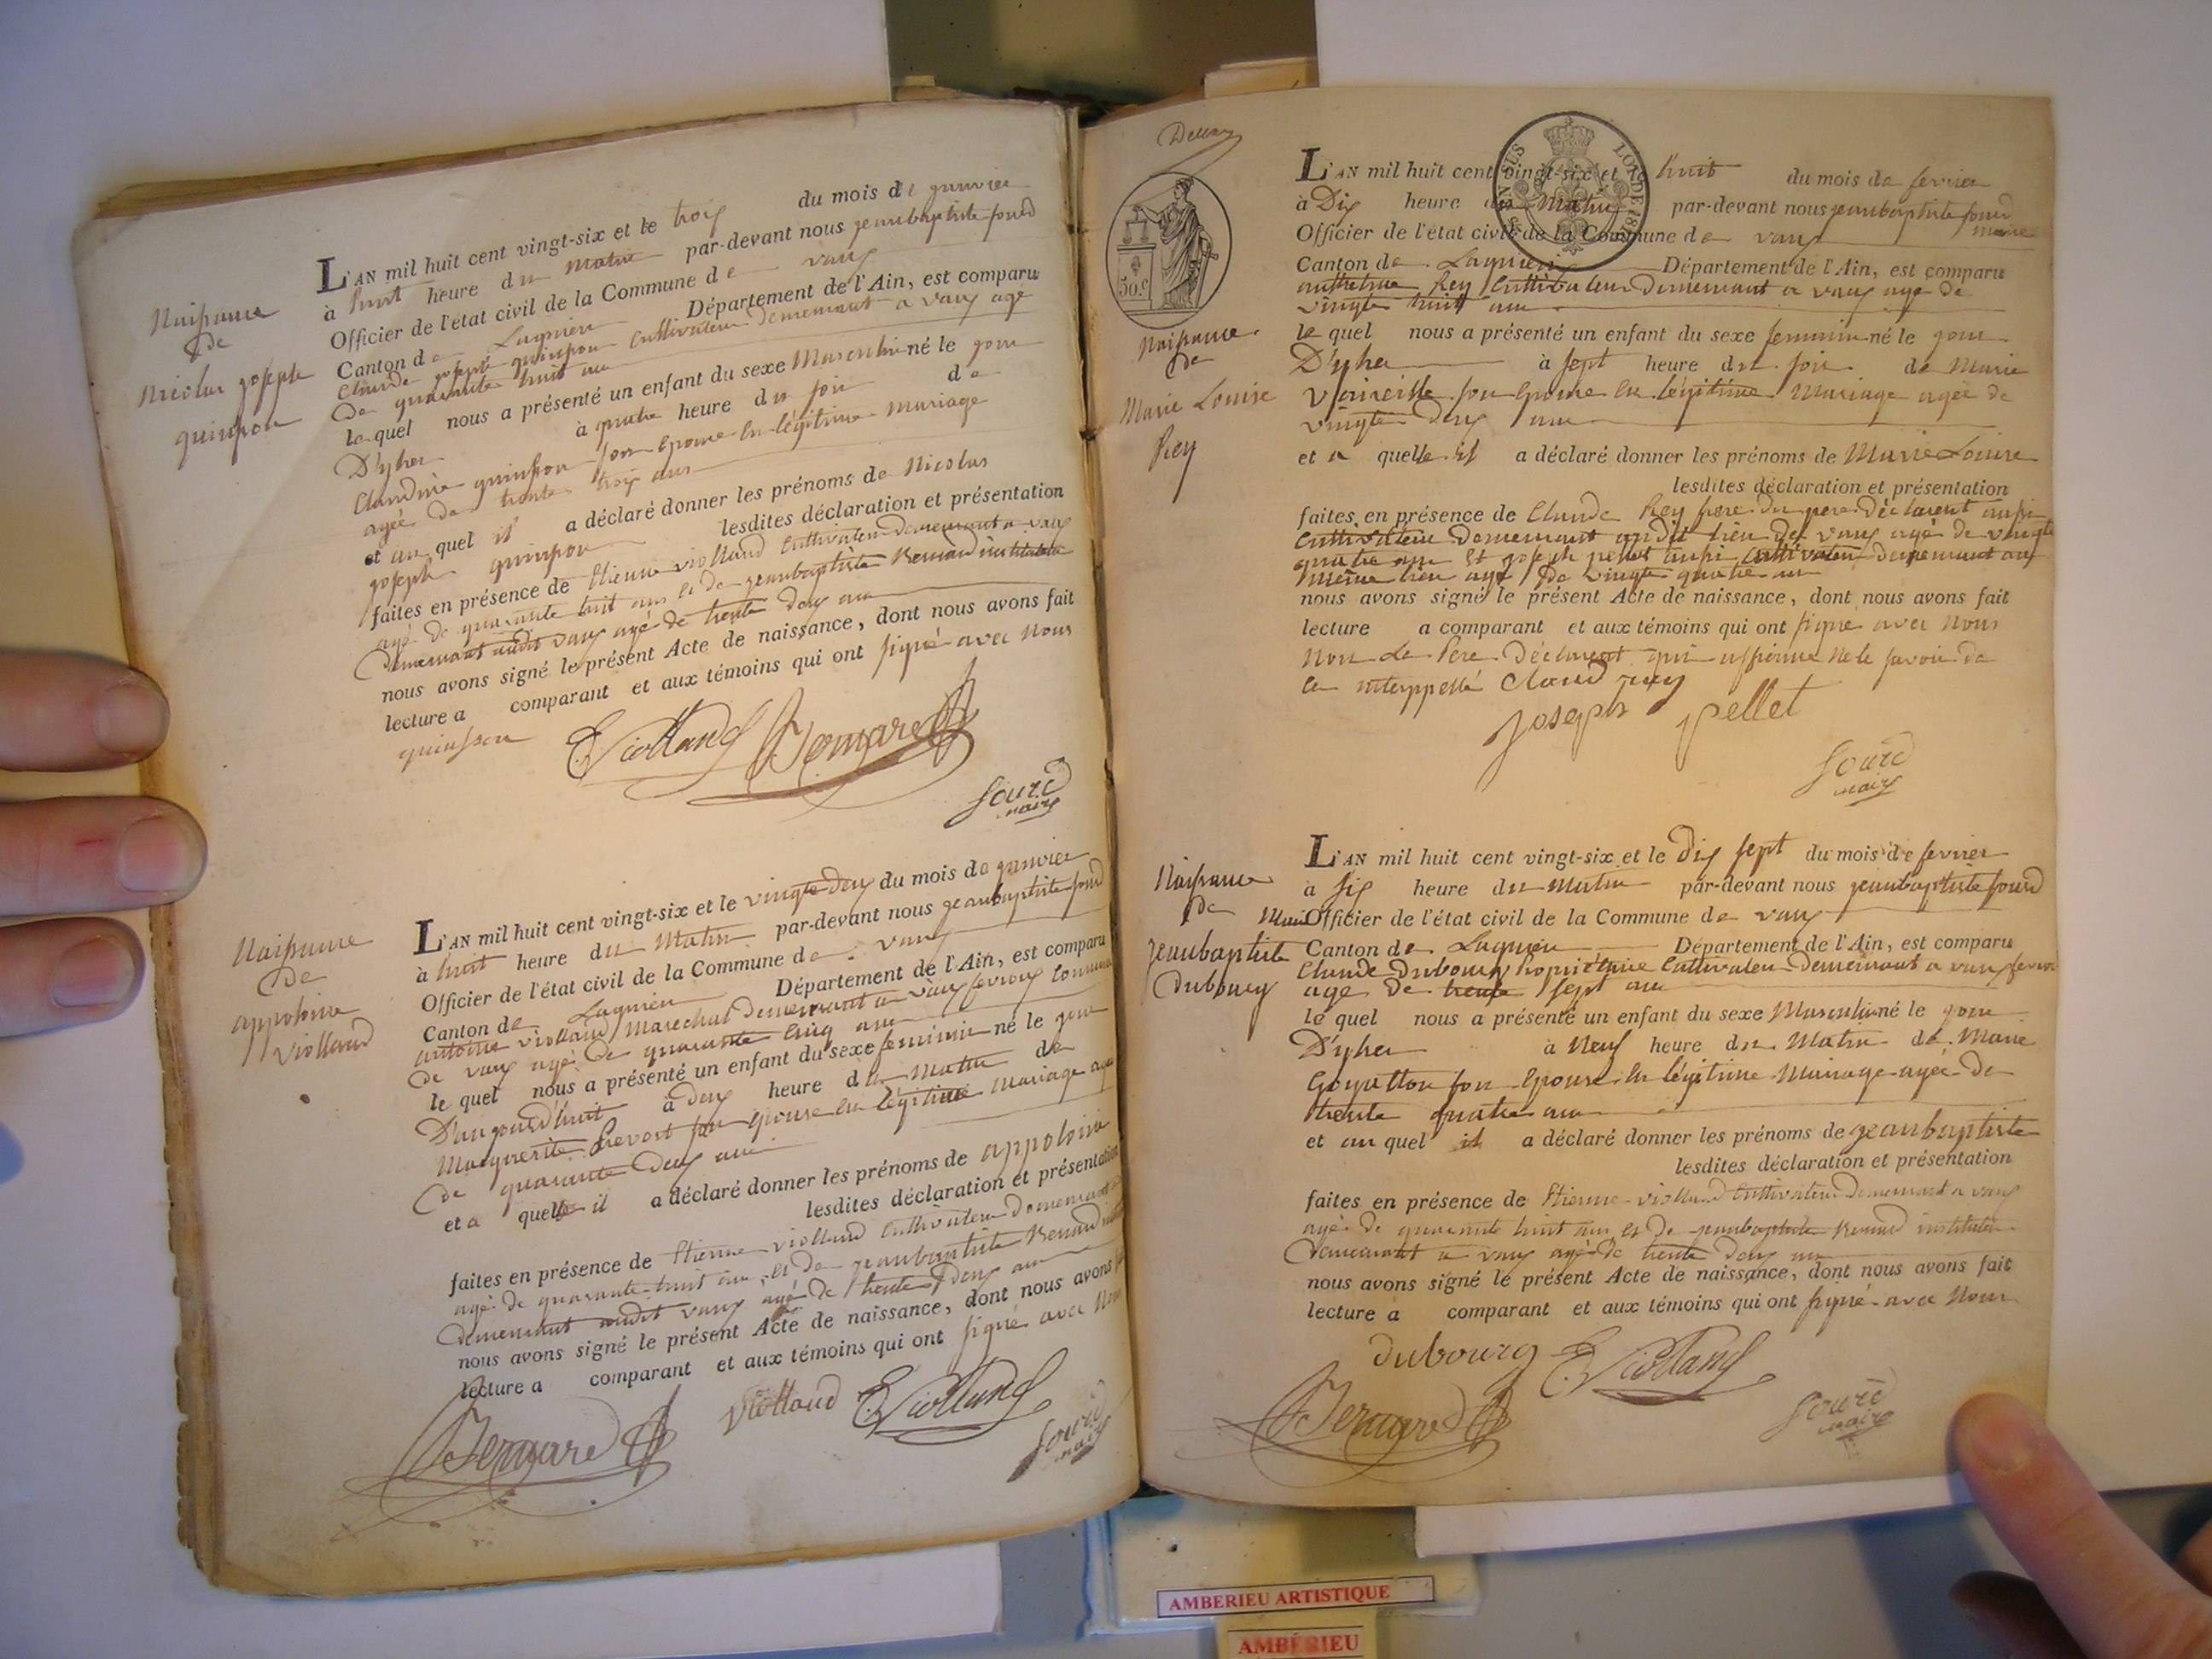 Naissance
de
Nicolas joseph
quinson
L'AN mil huit cent vingt-six et le trois du mois de janvier
à huit heure du matin par-devant nous jeanbaptiste sourd
Officier de l'état civil de la Commune de vaux
Canton de Lagnieu Département de l'Ain, est comparu
Claude joseph quinson Cultivateur demeurant a vaux agé
de quarante huit ans
le quel nous a présenté un enfant du sexe Masculin né le jour
D'yher à quatre heure du soir de
Claudine quinson son Epouse En légitime mariage
agée de trente trois ans
et au quel il a déclaré donner les prénoms de Nicolas
joseph quinson lesdites déclaration et présentation
faites en présence de Etienne viollaud Cultivateur demeurant a vaux
agé de quarante huit ans et de jeanbaptiste Bernard instituteur
demeurant audit vaux agé de trente deux ans
nous avons signé le présent Acte de naissance, dont nous avons fait
lecture a comparant et aux témoins qui ont signé avec Nous
quinson EViollaud Bernard
sourd
maire
Naissance
de
appoloine
viollaud
L'AN mil huit cent vingt-six et le vingt-deux du mois de janvier
à huit heure du Matin par-devant nous jeanbaptiste sourd
Officier de l'état civil de la Commune de vaux
Canton de Lagnieu Département de l'Ain, est comparu
antoine viollaud Marechal demeurant a vaux commune
de vaux agé de quarante cinq ans
le quel nous a présenté un enfant du sexe feminin né le jour
D'aujourd'huit à deux heure du matin de
Marguerite Prevost son Epouse En légitime Mariage agé
de quarante deux ans
et a quelle il a déclaré donner les prénoms de appoloine
lesdites déclaration et présentation
faites en présence de Etienne viollaud Cultivateur demeurant
agé de quarante huit ans et de jeanbaptiste Bernard
demeurant audit vaux agé de trente deux ans
nous avons signé le présent Acte de naissance, dont nous avons
lecture a comparant et aux témoins qui ont signé avec Nous
Bernard Viollaud EViollaud
sourd
maire
50.c
Naissance
de
Marie Louise
Rey
L'AN mil huit cent vingt-six et le huit du mois de fevrier
à Dix heure du Matin par-devant nous jeanbaptiste sourd
maire
Officier de l'état civil de la Commune de vaux
Canton de Lagnieu Département de l'Ain, est comparu
anthelme Rey Cultivateur Demeurant a vaux agé de
vingte huit ans
le quel nous a présenté un enfant du sexe feminin né le jour
D'yher à sept heure du soir de Marie
son Epouse En légitime Mariage agée de
vingte deux ans
et a quelle il a déclaré donner les prénoms de Marie Louise
lesdites déclaration et présentation
faites en présence de Claude Rey frere du pere déclarent aussi
Cultivateur Demeurant audit lieu de vaux agé de vingte
quatre ans Et joseph pellet aussi Cultivateur demeurant au
même lieu agé de vingte quatre ans
nous avons signé le présent Acte de naissance, dont nous avons fait
lecture a comparant et aux témoins qui ont signé avec Nous
Non le Pere Déclarent qui affirme Ne le savoir de
ce interppellé Claud rey
joseph pellet
sourd
maire
Naissance
de
jeanbaptiste
Dubourg
L'AN mil huit cent vingt-six et le dix sept du mois de fevrier
à six heure du matin par-devant nous jeanbaptiste sourd
Maire Officier de l'état civil de la Commune de vaux
Canton de Lagnieu Département de l'Ain, est comparu
Claude Dubourg Propriétaire Cultivateur demeurant a vaux
age de trente sept ans
le quel nous a présenté un enfant du sexe Masculin né le jour
D'yher à Neuf heure du Matin de Marie
son Epouse En légitime Mariage agée de
trente quatre ans
et au quel il a déclaré donner les prénoms de jeanbaptiste
lesdites déclaration et présentation
faites en présence de Etienne viollaud Cultivateur Demeurant a vaux
agé de quarante huit ans et de jeanbaptiste Bernard instituteur
demeurant a vaux agé de trente deux ans
nous avons signé le présent Acte de naissance, dont nous avons fait
lecture a comparant et aux témoins qui ont signé avec Nous
dubourg EViollaud
Bernard sourd
maire
AMBERIEU ARTISTIQUE
AMBÉRIEU